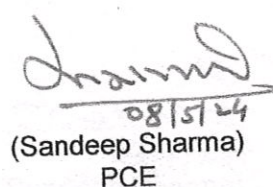 08/5/24
(Sandeep Sharma)
PCE